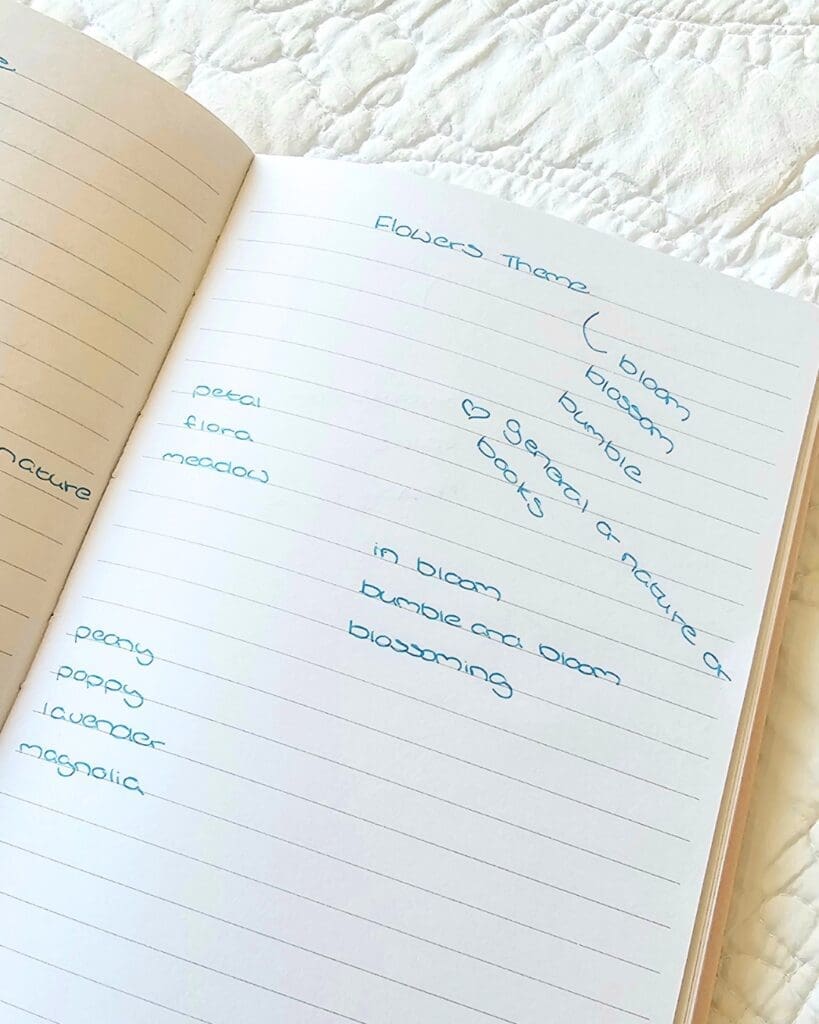 nature
Flowers Theme
bloom
blossom
bumble
♡ general or nature or
books
petal
flora
meadow
in bloom
bumble and bloom
blossoming
peony
poppy
lavender
magnolia